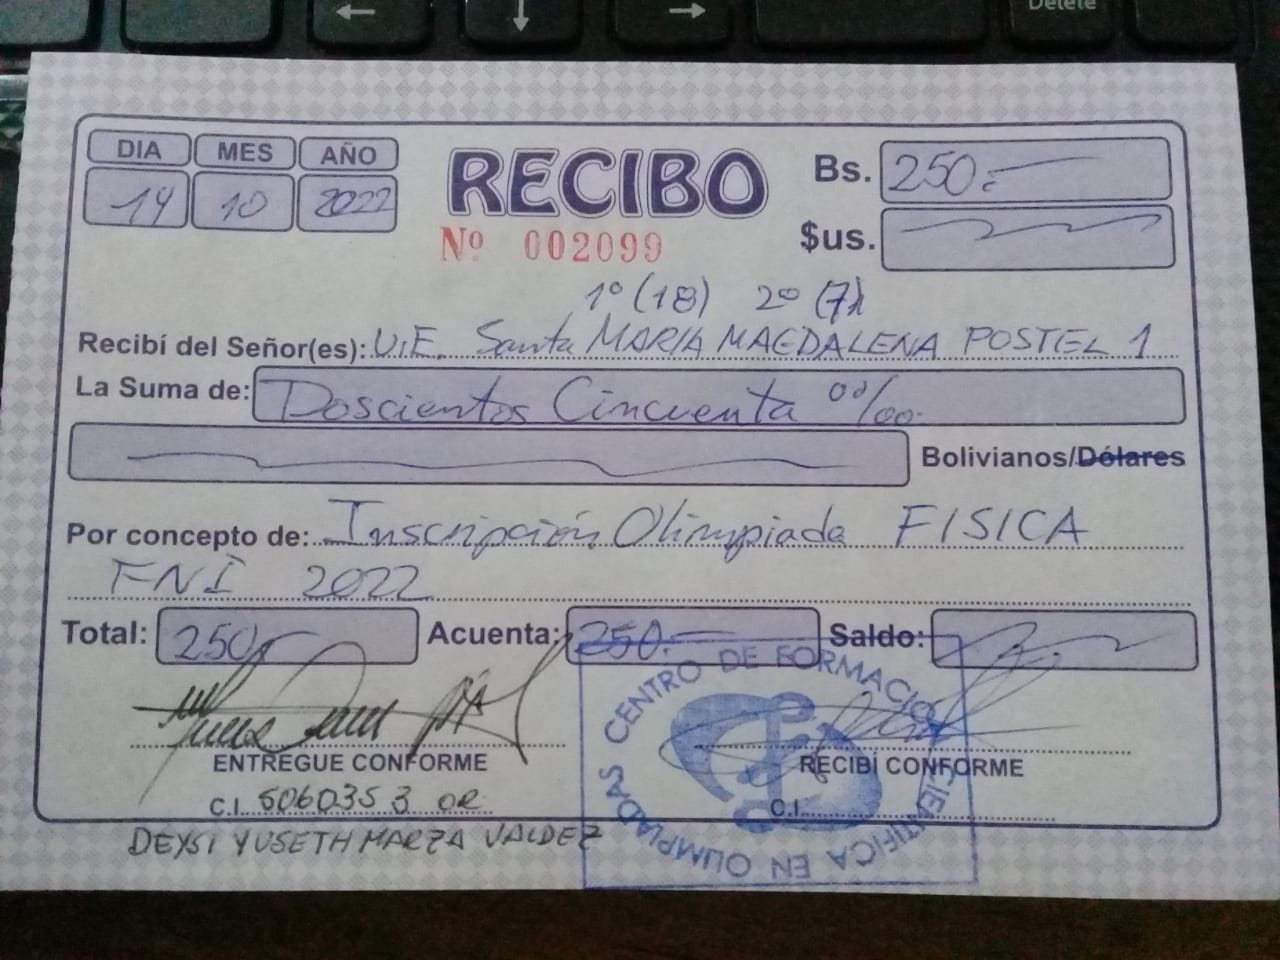 Delete
DIA MES AÑO
14 10 2022
RECIBO
Nº 002099
Bs. 250.-
$us.
1º (18) 2º (7)
Recibí del Señor(es): U.E. Santa MARIA MAGDALENA POSTEL 1
La Suma de: Doscientos Cincuenta 00/00.
Bolivianos/Dólares
Por concepto de: Inscripción Olimpiada FISICA
FNI 2022
Total: 250.- Acuenta: 250.- Saldo:
ENTREGUE CONFORME
C.I. 5060353 OR
DEYSI YUSETH MARZA VALDEZ
RECIBÍ CONFORME
C.I.
CENTRO DE FORMACION CIENTIFICA EN OLIMPIADAS